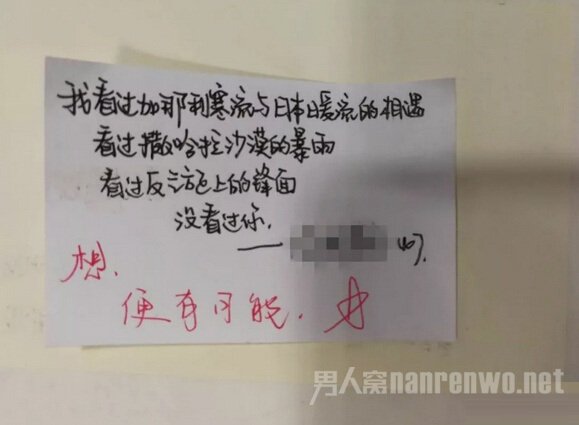 我看过加那利寒流与日本暖流的相遇
看过撒哈拉沙漠的暴雨
看过反气旋上的锋面
没看过你.
——
想.
便有可能.
男人窝nanrenwo.net